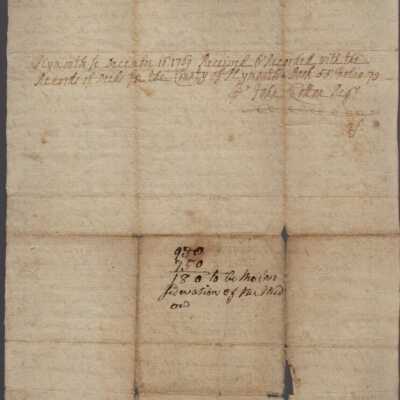 Plymouth Sc December 16 1769 Received & Recorded with the
Records of Deeds for the County of Plymouth Book 55 Folio 79
Pr John Cotton Regr
930
750
180 to be the
of the